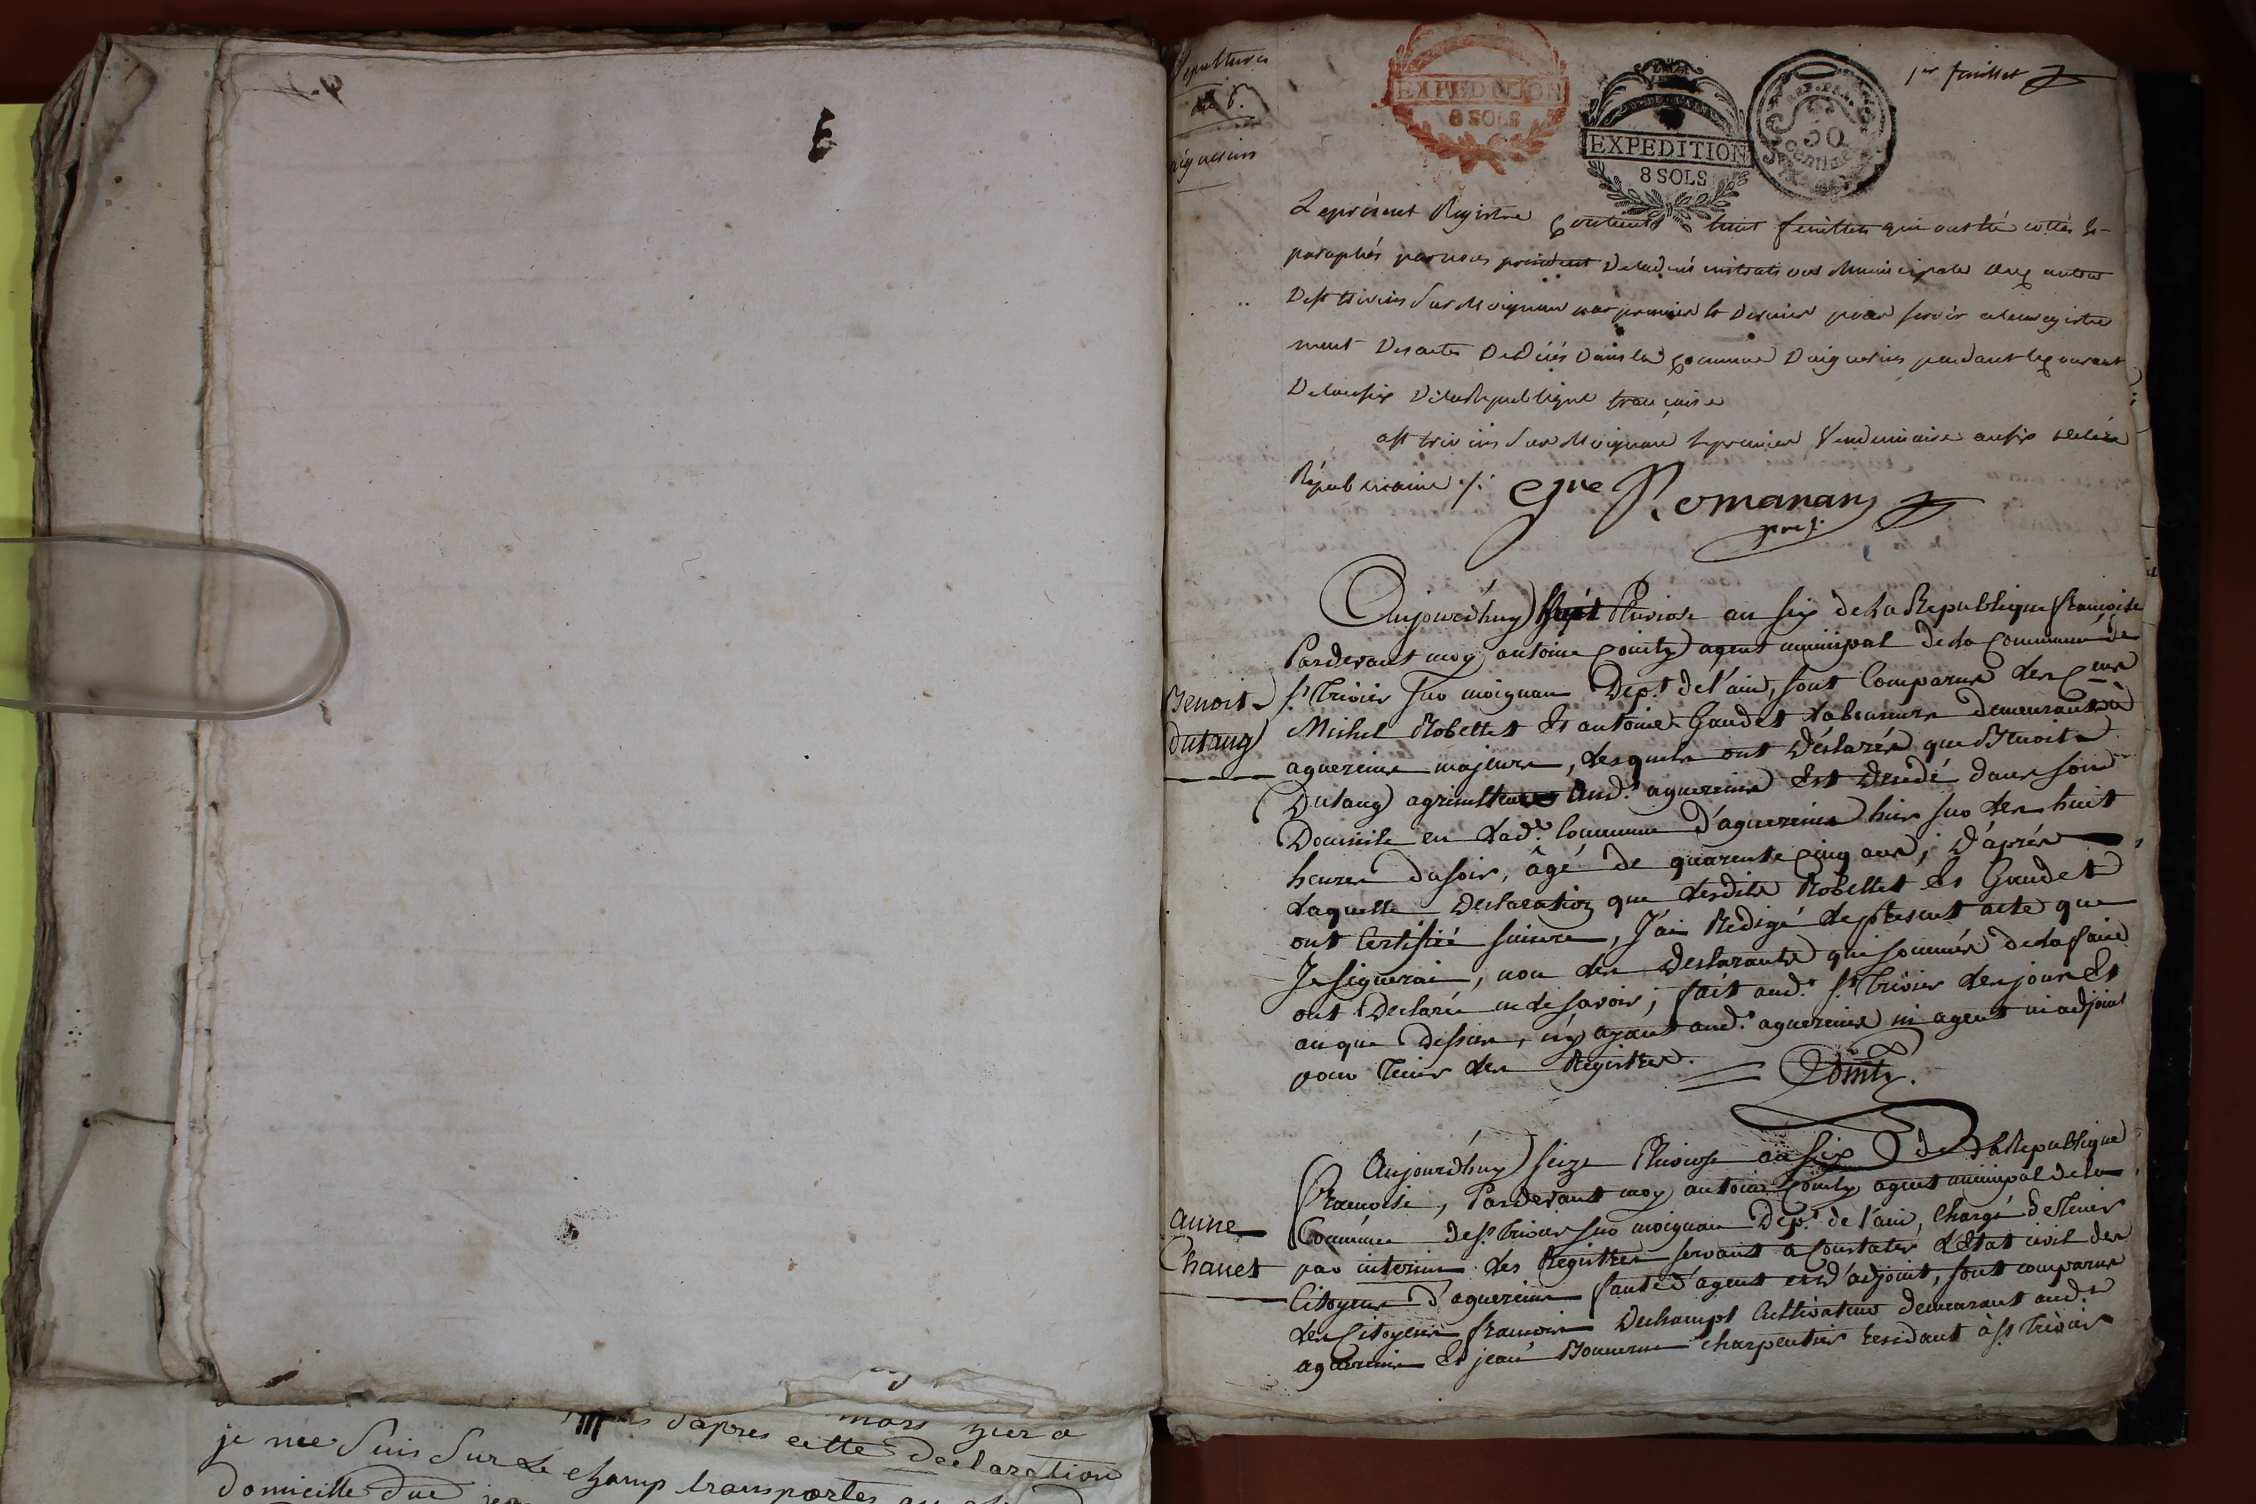 je me suis sur le champ transportés au
d'apres cette déclaration
domicille due
Sepultures
an 6.
aiguereins
EXPEDITION
8 SOLS
EXPEDITION
8 SOLS
50
centimes
1er feuillet
Le présent Registre contenant huit feuillets qui ont été cottés et
paraphés par nous président de l'administration municipale du canton
de st trivier sur Moignan par premier et dernier pour servir a l'enregistre
ment des actes de décès dans la commune d'aiguereins pendant le courant
de l'an six de la Republique française
a st trivier sur Moignan le premier Vendemiaire an six de l'ère
Républicaine ./.
Romanans
pres.t
Aujourd'huy huit Pluviose an six de la Republique françoise
Pardevant moy antoine Comty agent municipal de la commune de
st Trivier sur moignan Dep.t de l'ain, sont Comparus les C.ens
Benoit
Dutang
Michel Robellet et antoine Gaudet Laboureurs demeurants à
aguereins majeurs, lesquels ont déclarés que Benoit
Dutang agriculteur aud.t aguereins Est decedé dans son
Domicile en lad.e Commune d'aguereins hier sur les huit
heures du soir, âgé de quarente cinq ans, d'après
laquelle declaration que lesdits Robellet et Gaudet
ont Certifié sincere, J'ai Redigé le present acte que
Je signerai, non les declarants qui sommés de la faire
ont Declarés ne le savoir; fait aud.t st Trivier les jour Et
an que dessus, n'y ayant aud.t aguereins ni agent ni adjoint
pour tenir les Registres.
Comty.
Aujourd'huy seize Pluviose an six de la Republique
francoise, Pardevant moy antoine Comty agent municipal de la
Commune de st Trivier sur moignan Dep.t de l'ain, chargé de tenir
anne
Chanet
par interim les Registres servant a Constater l'Etat civil des
Citoyens d'aguereins faute d'agent et d'adjoint, sont comparus
les Citoyens francois Duchampt Cultivateur demeurant aud.t
aguereins et jean Bonneme charpentier residant à st Trivier